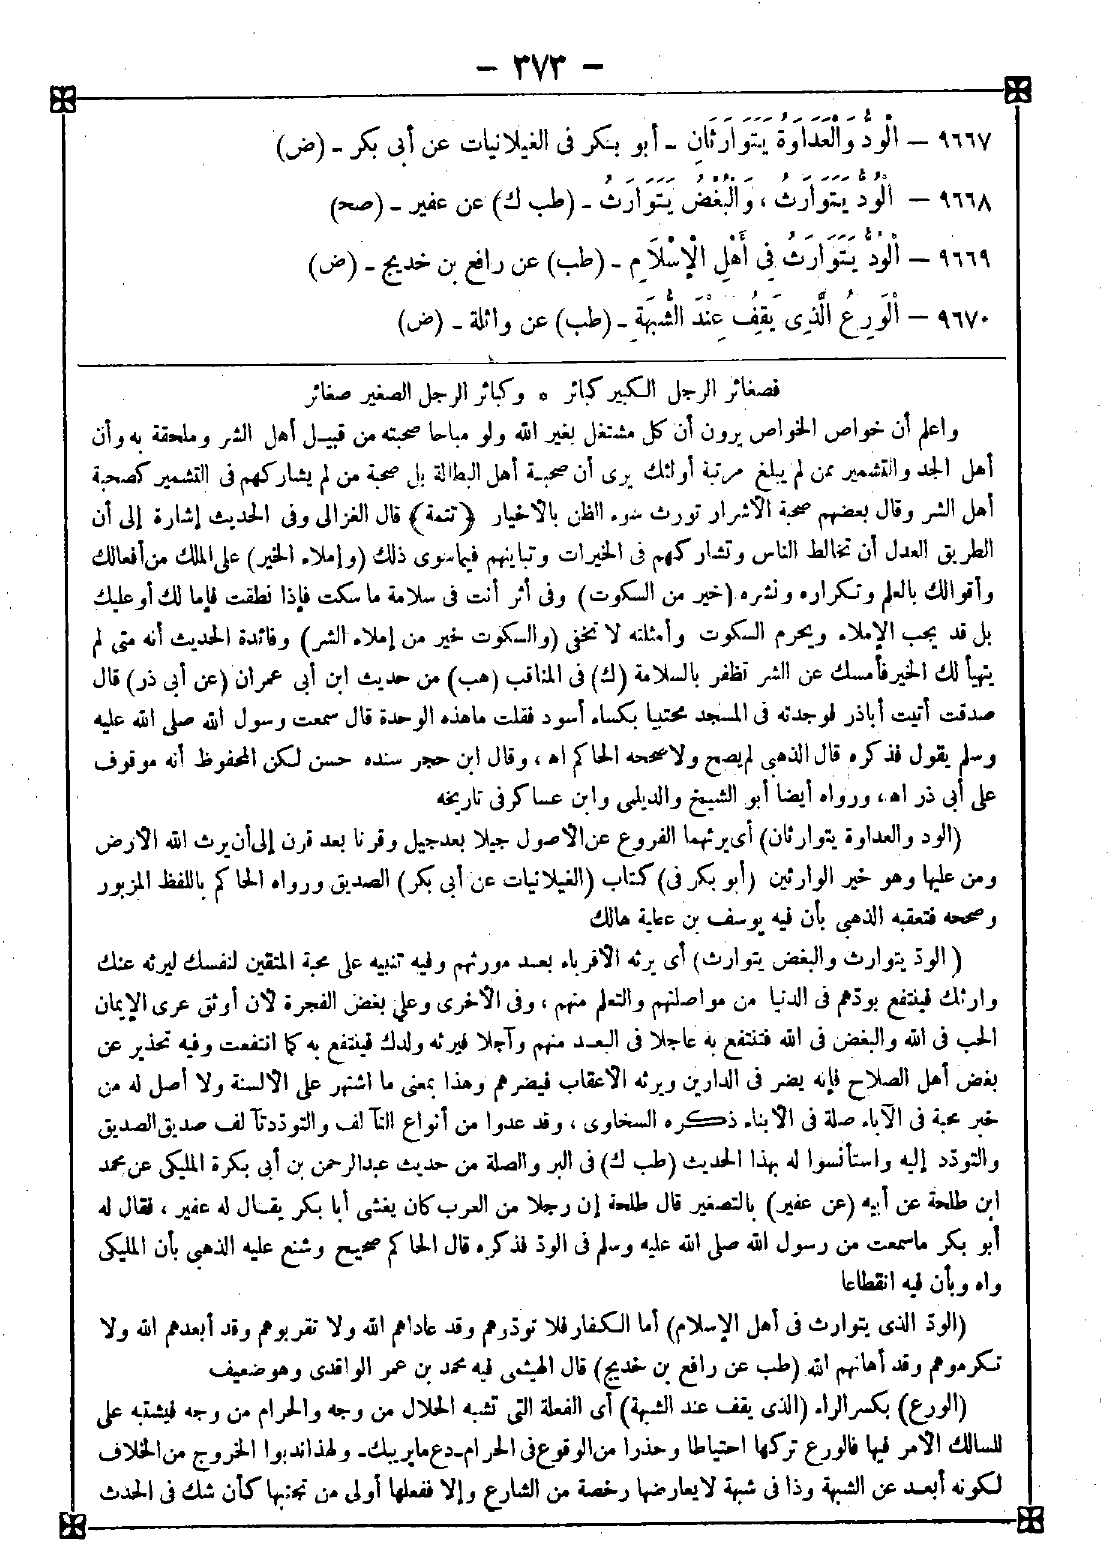 – ٣٧٣ –
٩٦٦٧ – الْوُدُّ وَالْعَدَاوَةُ يَتَوَارَثَانِ - أبو بكر فى الغيلانيات عن أبى بكر - (ض)
٩٦٦٨ – الْوُدُّ يَتَوَارَثُ ، وَالْبُغْضُ يَتَوَارَثُ - (طب ك) عن عفير - (صح)
٩٦٦٩ – الْوُدُّ يَتَوَارَثُ فِى أَهْلِ الْإِسْلَامِ - (طب) عن رافع بن خديج - (ض)
٩٦٧٠ – الْوَرِعُ الَّذِى يَقِفُ عِنْدَ الشُّبْهَةِ - (طب) عن واثلة - (ض)
فصغائر الرجل الكبير كبائر ٥ وكبائر الرجل الصغير صغائر
واعلم أن خواص الخواص يرون أن كل مشتغل بغير الله ولو مباحا صحبته من قبيل أهل الشر وملحقة به وأن
أهل الجد والتشمير ممن لم يبلغ مرتبة أولئك يرى أن صحبة أهل البطالة بل صحبة من لم يشاركهم فى التشمير كصحبة
أهل الشر وقال بعضهم صحبة الأشرار تورث سوء الظن بالأخيار (تتمة) قال الغزالى وفى الحديث إشارة إلى أن
الطريق العدل أن تخالط الناس وتشاركهم فى الخيرات وتباينهم فيماسوى ذلك (وإملاء الخير) على الملك من أفعالك
وأقوالك بالعلم وتكراره ونشره (خير من السكوت) وفى أثر أنت فى سلامة ما سكت فإذا نطقت فإما لك أو عليك
بل قد يجب الإملاء ويحرم السكوت وأمثلته لا تخفى (والسكوت خير من إملاء الشر) وفائدة الحديث أنه متى لم
يتهيأ لك الخير فأمسك عن الشر تظفر بالسلامة (ك) فى المناقب (هب) من حديث ابن أبى عمران (عن أبى ذر) قال
صدقت أتيت أباذر فوجدته فى المسجد محتبيا بكساء أسود فقلت ماهذه الوحدة قال سمعت رسول الله صلى الله عليه
وسلم يقول فذكره قال الذهبى لم يصح ولا صححه الحاكم اه ، وقال ابن حجر سنده حسن لكن المحفوظ أنه موقوف
على أبى ذر اه ، ورواه أيضا أبو الشيخ والديلمى وابن عساكر فى تاريخه
(الود والعداوة يتوارثان) أى يرثهما الفروع عن الأصول جيلا بعد جيل وقرنا بعد قرن إلى أن يرث الله الأرض
ومن عليها وهو خير الوارثين (أبو بكر فى) كتاب (الغيلانيات عن أبى بكر) الصديق ورواه الحاكم باللفظ المزبور
وصححه فتعقبه الذهبى بأن فيه يوسف بن عطية هالك
(الودّ يتوارث والبغض يتوارث) أى يرثه الأقرباء بعد مورثهم وفيه تنبيه على محبة المتقين لنفسك ليرثه عنك
وارثك فينتفع بودّهم فى الدنيا من مواصلتهم والتعلم منهم ، وفى الأخرى وعلى بغض الفجرة لأن أوثق عرى الإيمان
الحب فى الله والبغض فى الله فتنتفع به عاجلا فى البعد منهم وآجلا فيرثه ولدك فينتفع به كما انتفعت وفيه تحذير عن
بغض أهل الصلاح فإنه يضر فى الدارين ويرثه الأعقاب فيضرهم وهذا بمعنى ما اشتهر على الألسنة ولا أصل له من
خبر محبة فى الآباء صلة فى الأبناء ذكره السخاوى ، وقد عدوا من أنواع التآلف والتودّد تآلف صديق الصديق
والتودّد إليه واستأنسوا له بهذا الحديث (طب ك) فى البر والصلة من حديث عبدالرحمن بن أبى بكرة المليكى عن محمد
ابن طلحة عن أبيه (عن عفير) بالتصغير قال طلحة إن رجلا من العرب كان يغشى أبا بكر يقال له عفير ، فقال له
أبو بكر ماسمعت من رسول الله صلى الله عليه وسلم فى الودّ فذكره قال الحاكم صحيح وشنع عليه الذهبى بأن المليكى
واه وبأن فيه انقطاعا
(الودّ الذى يتوارث فى أهل الإسلام) أما الكفار فلا توذرهم وقد عاداهم الله ولا تقربوهم وقد أبعدهم الله ولا
تكرموهم وقد أهانهم الله (طب عن رافع بن خديج) قال الهيثمى فيه محمد بن عمر الواقدى وهو ضعيف
(الورع) بكسر الراء (الذى يقف عند الشبهة) أى الفعلة التى تشبه الحلال من وجه والحرام من وجه فيشتبه على
للسالك الأمر فيها فالورع تركها احتياطا وحذرا من الوقوع فى الحرام - دع ما يريبك - ولهذا ندبوا الخروج من الخلاف
لكونه أبعد عن الشبهة وذا فى شبهة لايعارضها رخصة من الشارع وإلا ففعلها أولى من تجنبها كأن شك فى الحدث